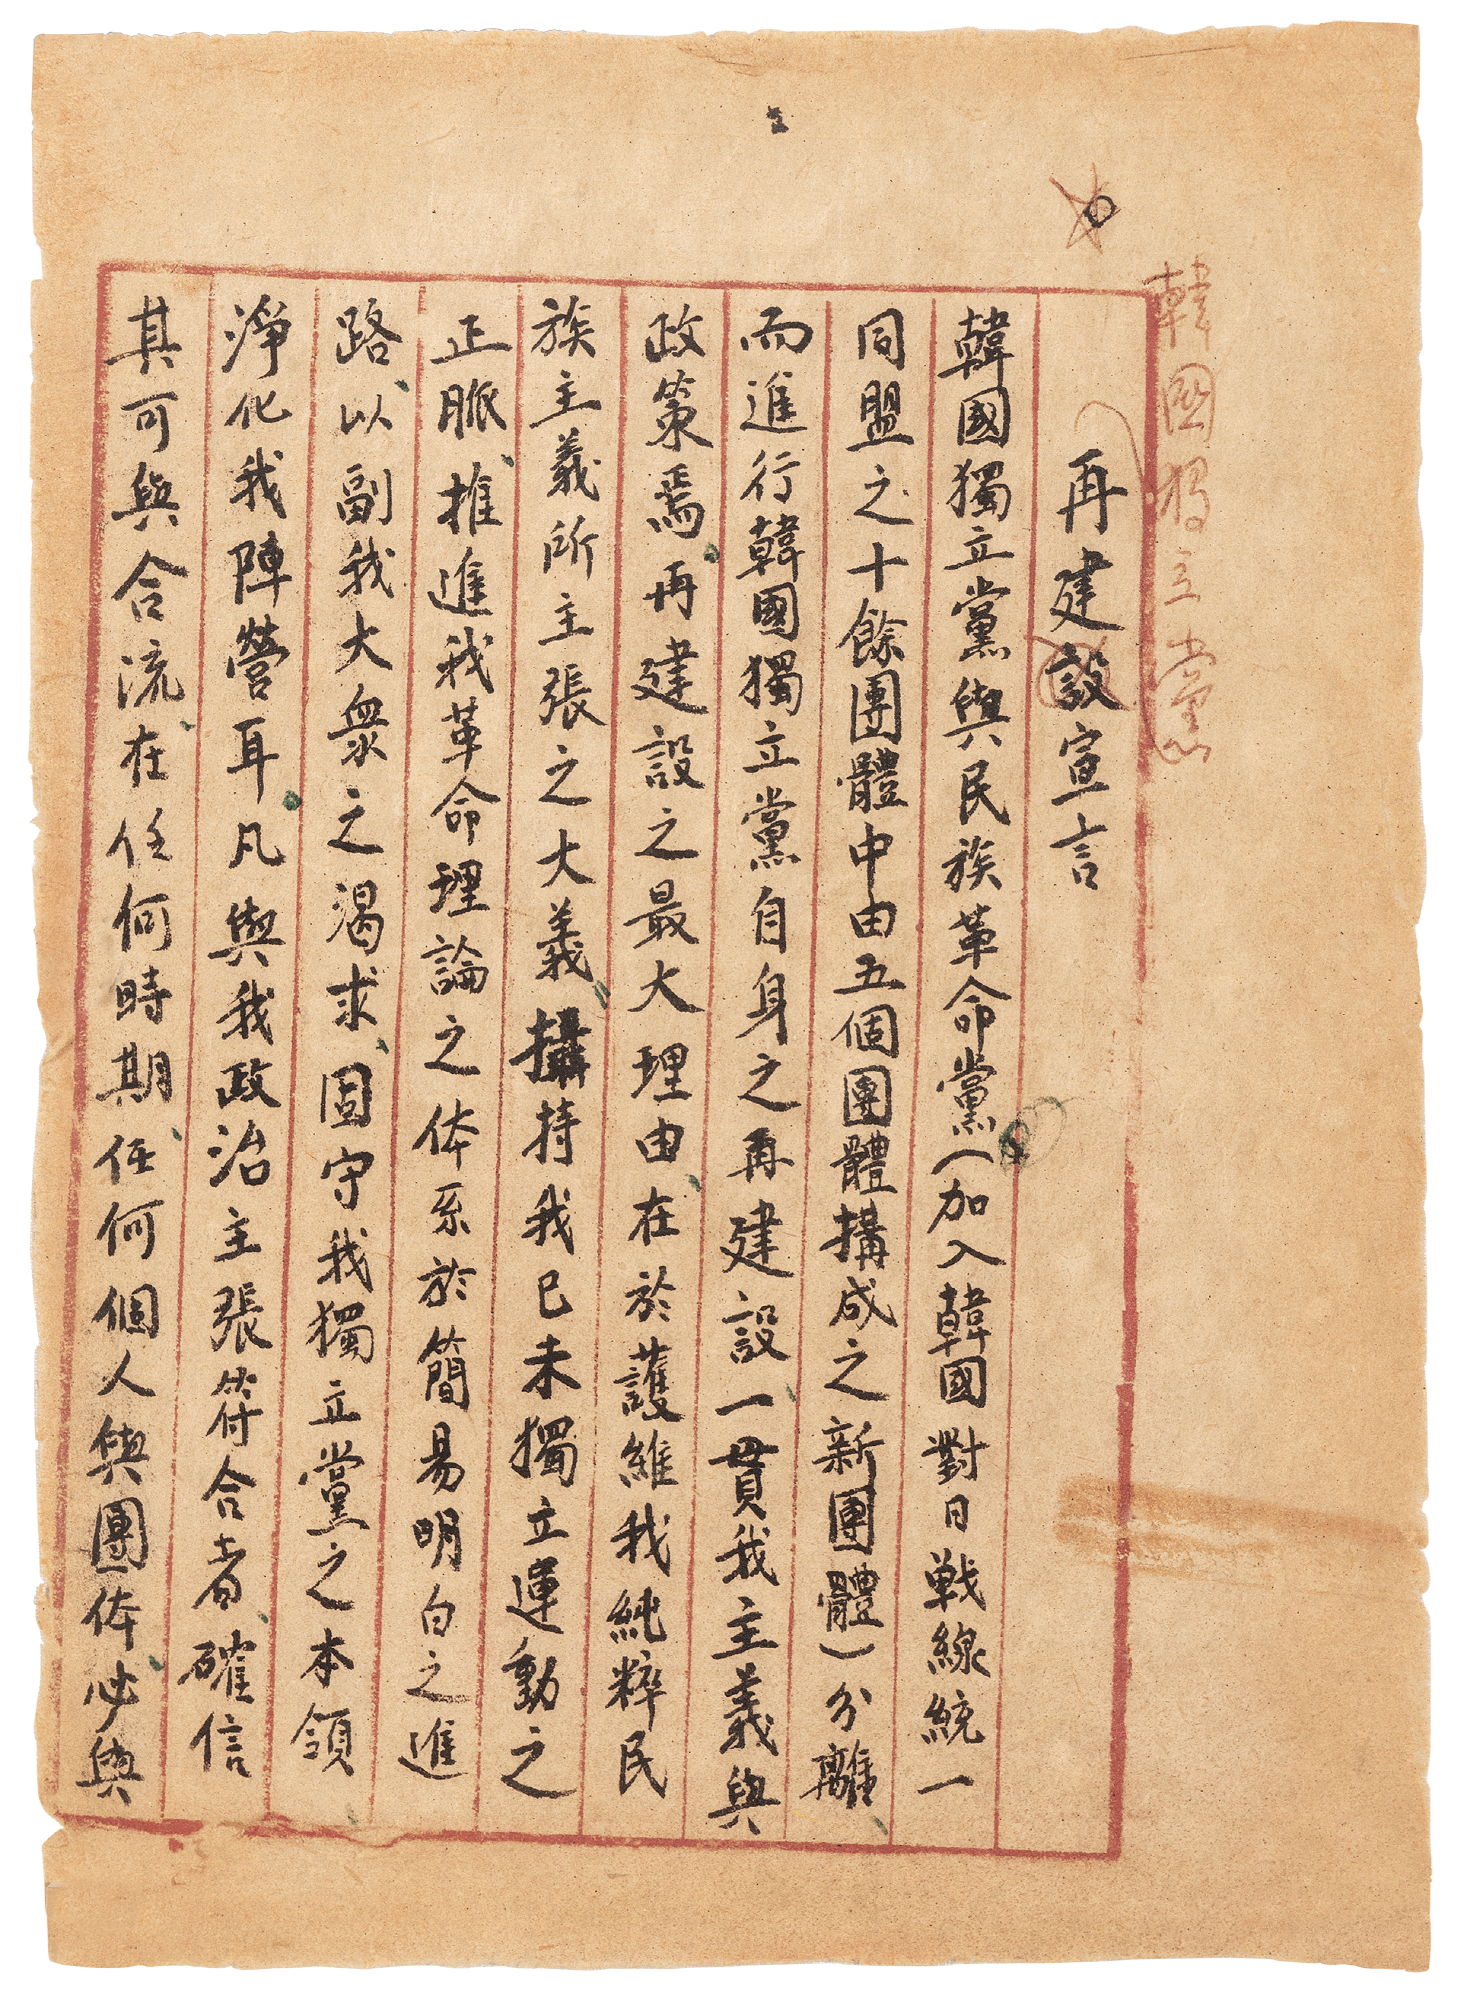 韓國獨立黨
再建設宣言
韓國獨立黨與民族革命黨(加入韓國對日戰線統一
同盟之十餘團體中由五個團體搆成之新團體)分離
而進行韓國獨立黨自身之再建設一貫我主義與
政策焉再建設之最大理由在於護維我純粹民
族主義所主張之大義攝持我已未獨立運動之
正脈推進我革命理論之体系於簡易明白之進
路以副我大衆之渴求固守我獨立黨之本領
淨化我陣營耳凡與我政治主張符合者確信
其可與合流在任何時期任何個人與團体必與